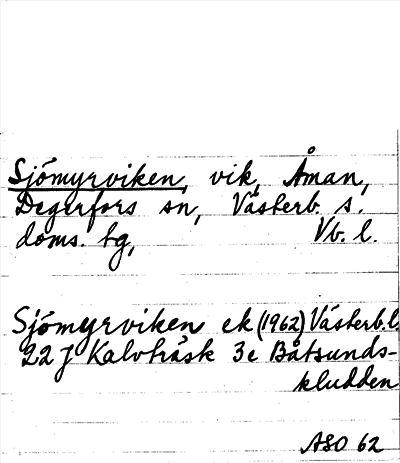 Sjömyrviken, vik, Åman,
Degerfors sn, Västerb. s.
doms. tg, Vb. l.
Sjömyrviken ek (1962) Västerb. l.
22 J Kalvträsk 3e Båtsunds-
kludden
ASO 62